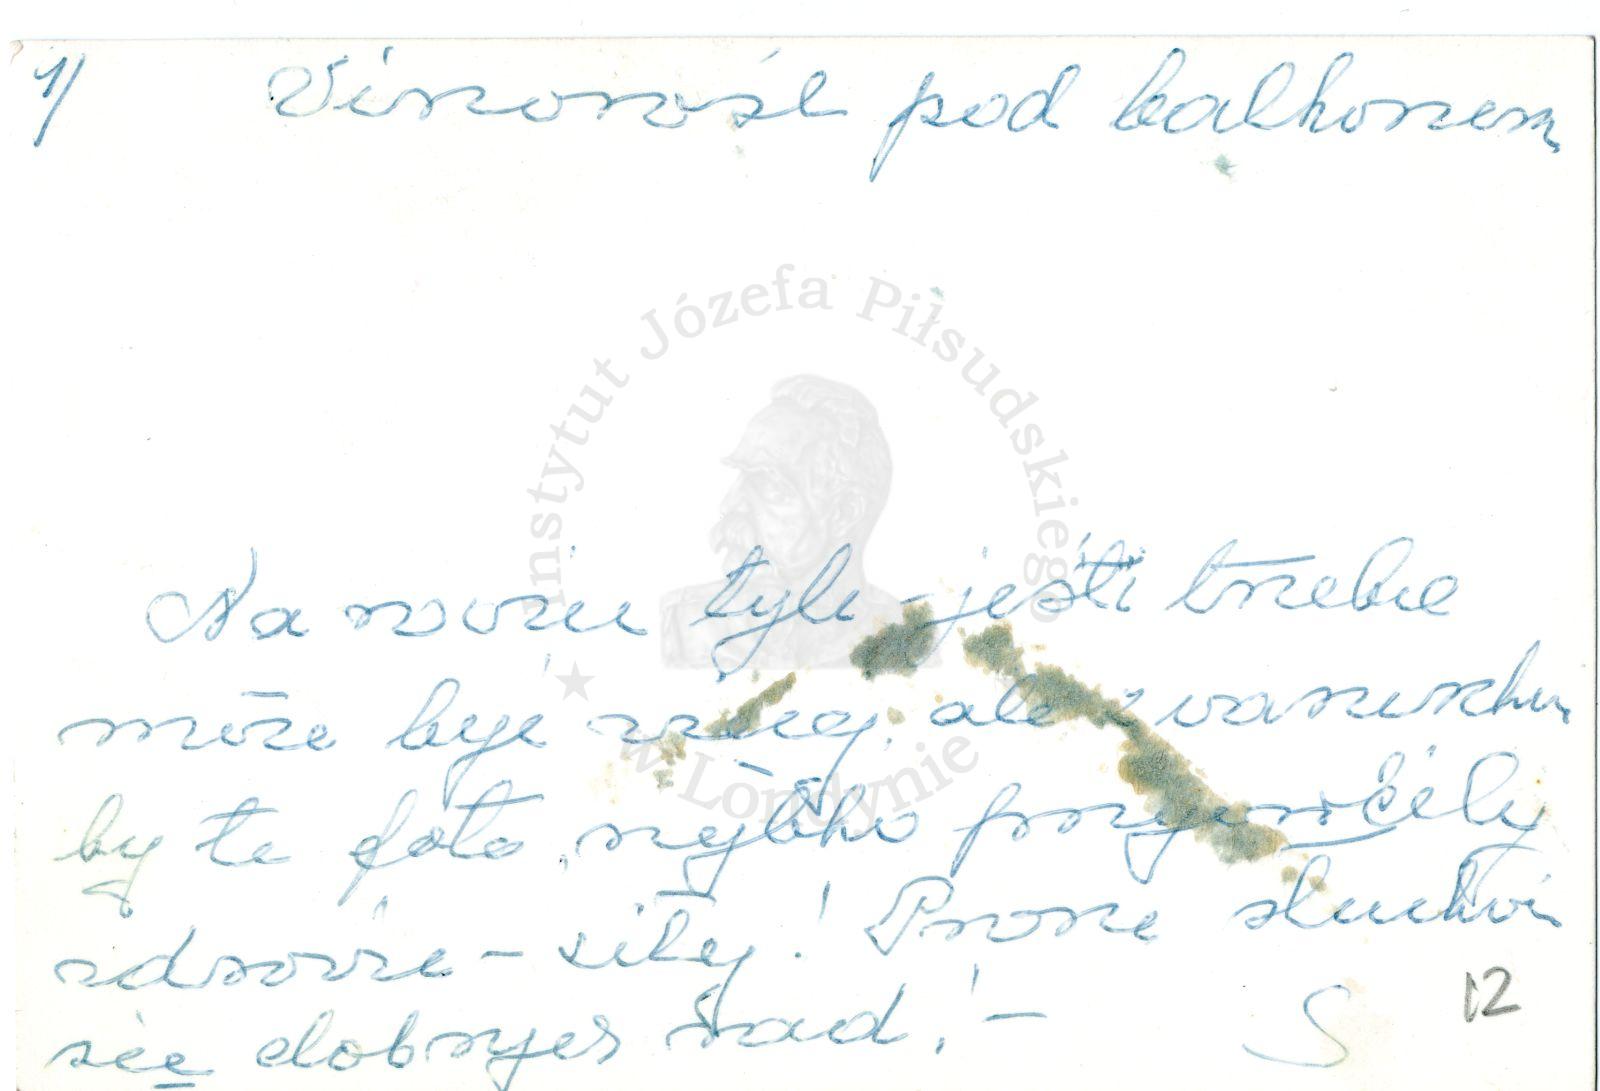 1/ Winorośl pod balkonem
Instytut Józefa Piłsudskiego
w Londynie
Na razie tyle - jeśli trzeba
może być więcej, ale warunek
by te foto szybko przywróciły
zdrowie - siły! Proszę słuchać
się dobrych rad! -
S 12